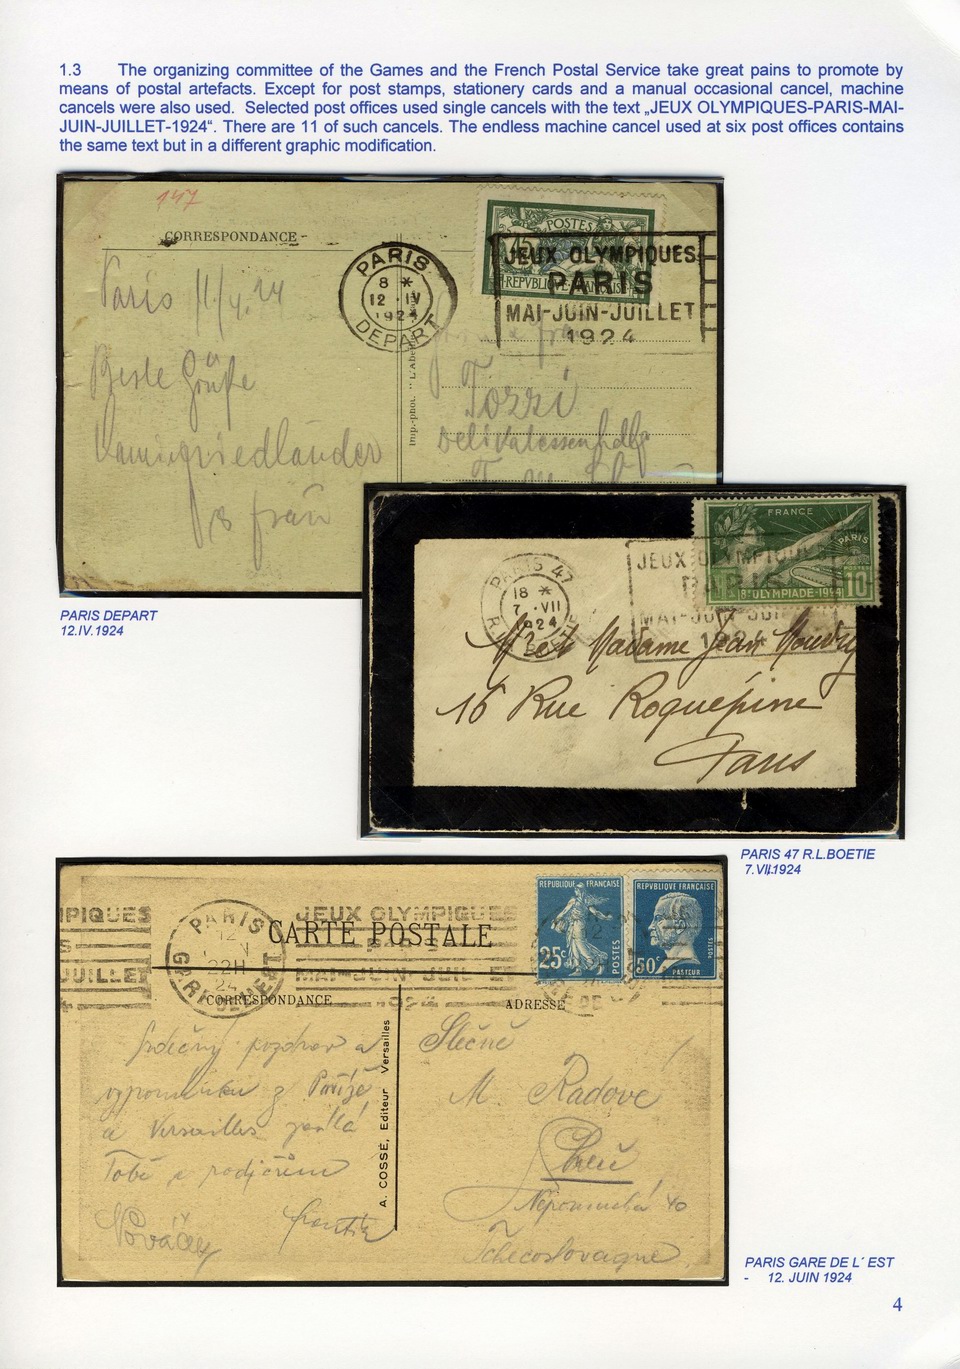 1.3 The organizing committee of the Games and the French Postal Service take great pains to promote by
means of postal artefacts. Except for post stamps, stationery cards and a manual occasional cancel, machine
cancels were also used. Selected post offices used single cancels with the text „JEUX OLYMPIQUES-PARIS-MAI-
JUIN-JUILLET-1924“. There are 11 of such cancels. The endless machine cancel used at six post offices contains
the same text but in a different graphic modification.
147
CORRESPONDANCE
POSTES
PARIS
8 *
12 · IV
1924
DEPART
JEUX OLYMPIQUES
PARIS
MAI-JUIN-JUILLET
1924
Paris 11/4.24
Beste Grüße
Tozzi
Imp.-phot.
PARIS DEPART
12.IV.1924
FRANCE
PARIS
10
8e OLYMPIADE-1924
PARIS 47
18 *
7 · VII
1924
JEUX OLYMPIQUES
PARIS
MAI-JUIN-JUI
1924
M et Madame Jean
16 Rue Roquépine
Paris
PARIS 47 R.L.BOETIE
7.VII.1924
IPIQUES
S
JUILLET
4
PARIS
12
22H
24
JEUX OLYMPIQUES
MAI-JUIN-JUILLET
1924
CARTE POSTALE
REPUBLIQUE FRANÇAISE
25c
POSTES
REPVBLIQVE FRANÇAISE
50c
POSTES
PASTEUR
CORRESPONDANCE
ADRESSE
Srdečný pozdrav a
vzpomínku z Paříže
a Versailles
Tobě a rodičům
Nováček
A. COSSÉ, Editeur Versailles
Slečně
M. Radove
Nepomucká 40
Tchecoslovaque
PARIS GARE DE L´ EST
- 12. JUIN 1924
4